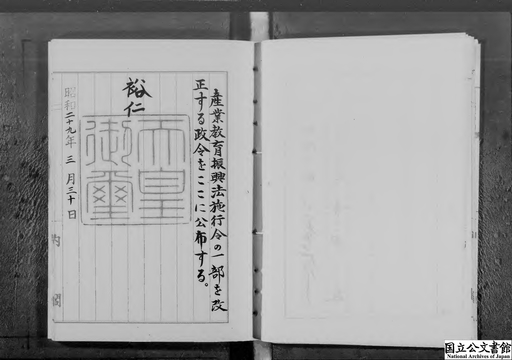 産業教育振興法施行令の一部を改
正する政令をここに公布する。
裕仁
天皇
御璽
昭和二十九年三月三十日
内閣
国立公文書館
National Archives of Japan